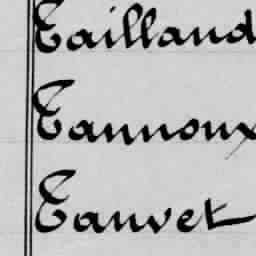 Tailland
Tannoux
Tauvet